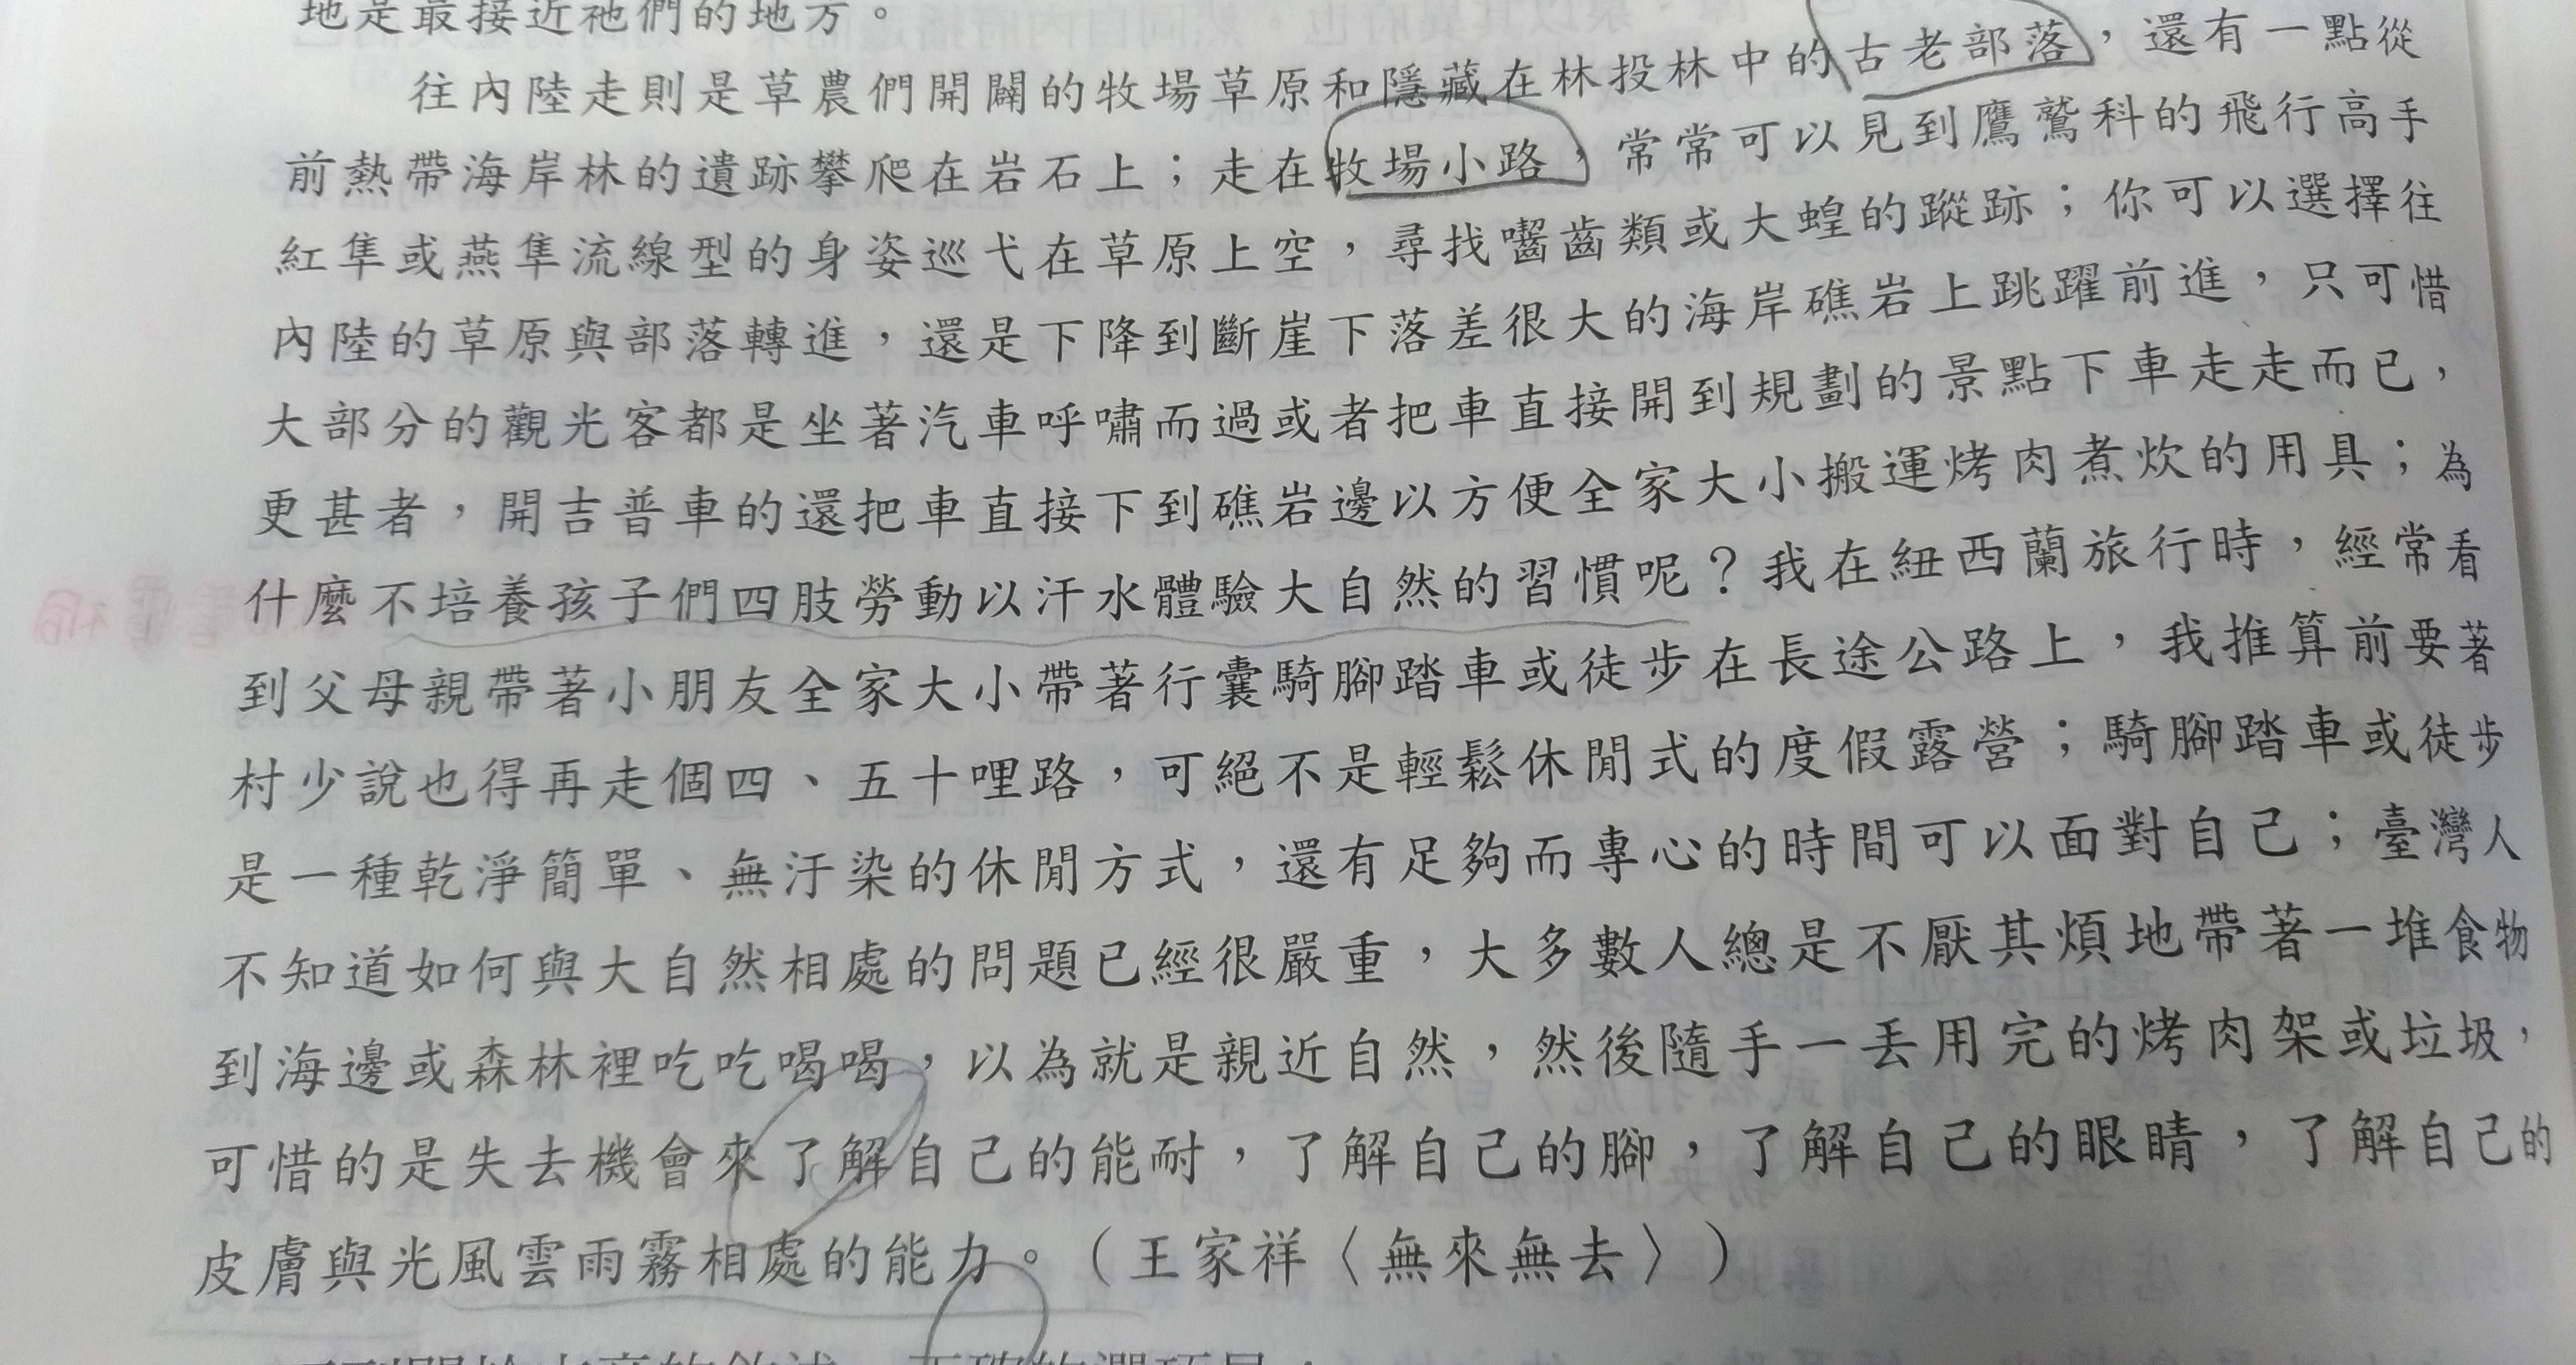 地是最接近祂們的地方。
往內陸走則是草農們開闢的牧場草原和隱藏在林投林中的古老部落，還有一點從
前熱帶海岸林的遺跡攀爬在岩石上；走在牧場小路，常常可以見到鷹鷲科的飛行高手
紅隼或燕隼流線型的身姿巡弋在草原上空，尋找囓齒類或大蝗的蹤跡；你可以選擇往
內陸的草原與部落轉進，還是下降到斷崖下落差很大的海岸礁岩上跳躍前進，只可惜
大部分的觀光客都是坐著汽車呼嘯而過或者把車直接開到規劃的景點下車走走而已，
更甚者，開吉普車的還把車直接下到礁岩邊以方便全家大小搬運烤肉煮炊的用具；為
什麼不培養孩子們四肢勞動以汗水體驗大自然的習慣呢？我在紐西蘭旅行時，經常看
到父母親帶著小朋友全家大小帶著行囊騎腳踏車或徒步在長途公路上，我推算前要著
村少說也得再走個四、五十哩路，可絕不是輕鬆休閒式的度假露營；騎腳踏車或徒步
是一種乾淨簡單、無汙染的休閒方式，還有足夠而專心的時間可以面對自己；臺灣人
不知道如何與大自然相處的問題已經很嚴重，大多數人總是不厭其煩地帶著一堆食物
到海邊或森林裡吃吃喝喝，以為就是親近自然，然後隨手一丟用完的烤肉架或垃圾，
可惜的是失去機會來了解自己的能耐，了解自己的腳，了解自己的眼睛，了解自己的
皮膚與光風雲雨霧相處的能力。（王家祥〈無來無去〉）